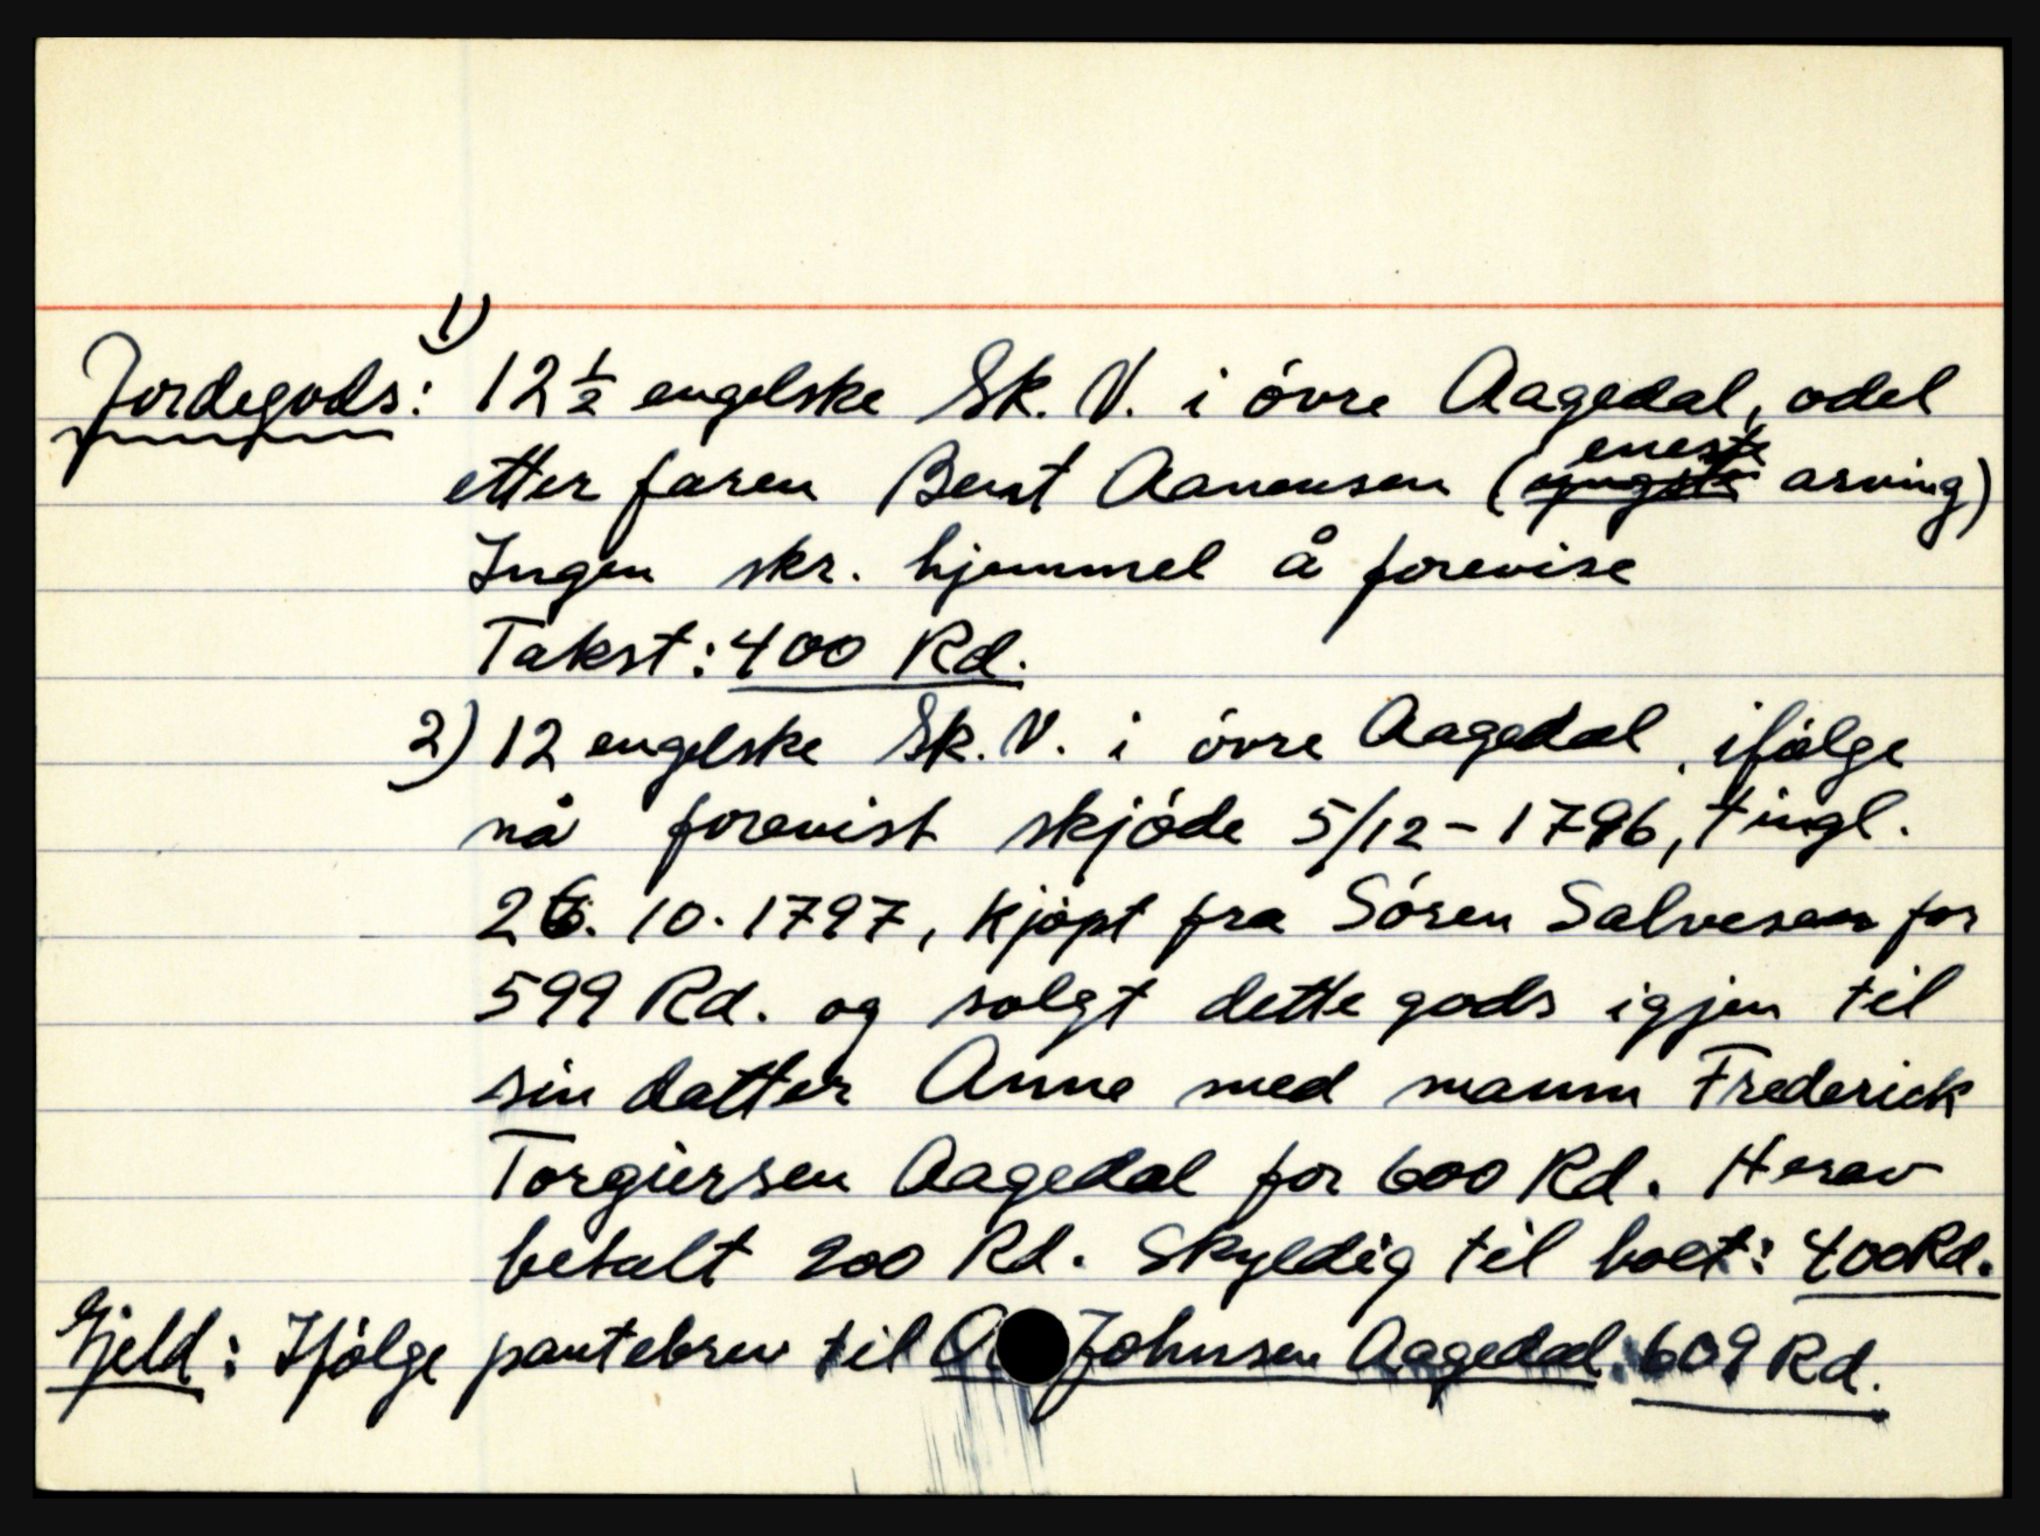 Jordegods: 1) 12 1/2 engelske Sk. V. i óvre Aagedal, odel
etter faren Bent Aanensen (eneste arving)
Ingen skr. hjemmel å forevise
Takst: 400 Rd.
2) 12 engelske Sk. V. i óvre Aagedal, ifólge
nå forevist skjóde 5/12 - 1796, tingl.
26. 10. 1797, kjópt fra Sóren Salvesen for
599 Rd. og solgt dette gods igjen til
sin datter Anne med mann Frederick
Torgiersen Aagedal for 600 Rd. Herav
betalt 200 Rd. Skyldig til boet: 400 Rd.
Gjeld: Ifólge pantebrev til Johnsen Aagedal. 609 Rd.